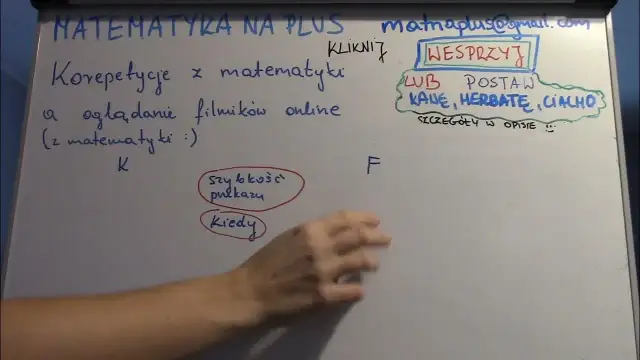 MATEMATYKA NA PLUS
matnaplus@gmail.com
KLIKNIJ
WESPRZYJ
LUB POSTAW
KAWĘ, HERBATĘ, CIACHO
SZCZEGÓŁY W OPISIE
Korepetycje z matematyki
a oglądanie filmików online
(z matematyki :)
K
F
szybkość
przekazu
kiedy